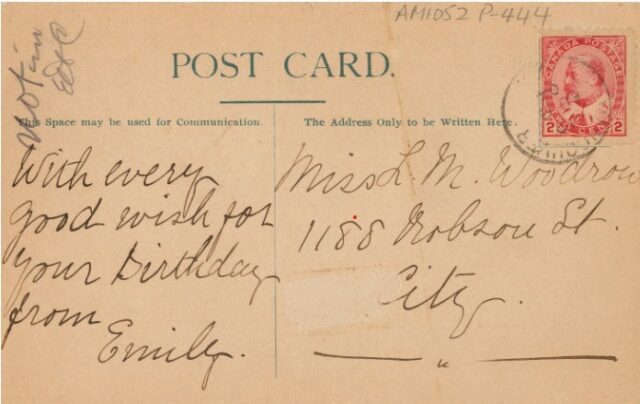 AM1052 P-444
not in
E&C
POST CARD.
This Space may be used for Communication.
The Address Only to be Written Here.
CANADA POSTAGE
2 CENTS 2
With every
good wish for
your Birthday
from
Emily.
Miss L. M. Woodrow
1188 Robson St.
City.